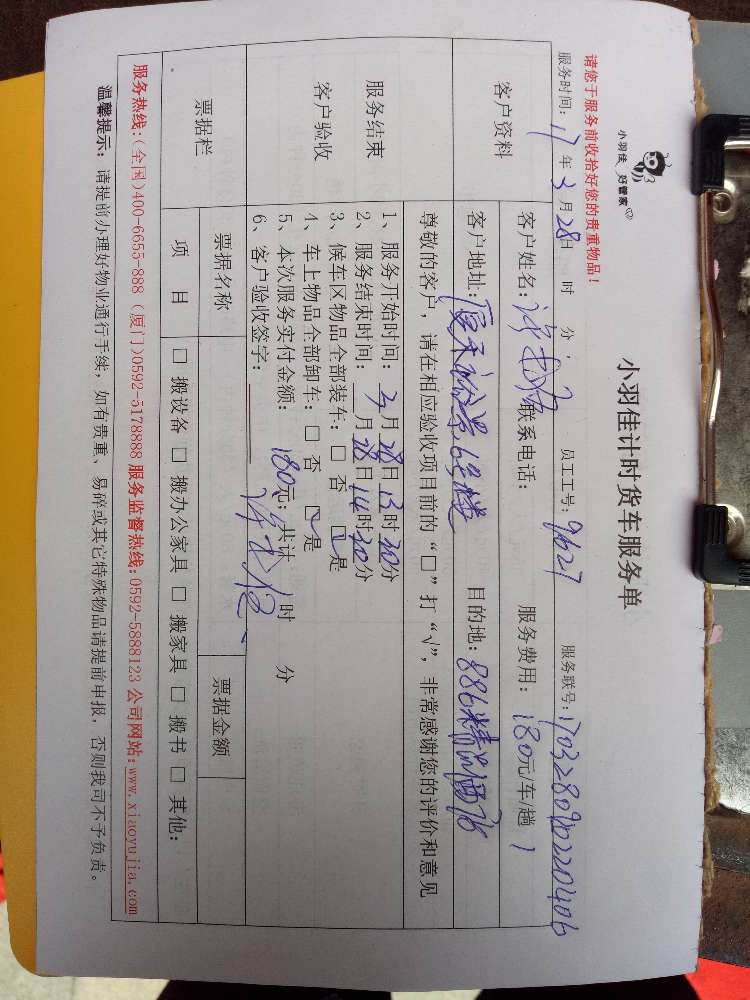 小羽佳 好管家
小羽佳计时货车服务单
请您于服务前收拾好您的贵重物品！
服务时间：17年3月28日 时 分 员工工号：9627 服务联号：
客户资料
客户姓名： 联系电话： 服务费用：180元/车/趟
客户地址： 6号楼 目的地：886精品酒店
服务结束
客户验收
尊敬的客户，请在相应验收项目前的“□”打“√”，非常感谢您的评价和意见
1、服务开始时间：3月28日13时30分
2、服务结束时间：__月28日14时30分
3、候车区物品全部装车：□ 否 ☑是
4、车上物品全部卸车：□ 否 ☑是
5、本次服务实付金额：180元；共计 时 分
6、客户验收签字：
票据栏
票据名称 票据金额
项 目 □ 搬设备 □ 搬办公家具 □ 搬家具 □ 搬书 □ 其他：
服务热线:(全国)400-6655-888 (厦门)0592-5178888 服务监督热线: 0592-5888123 公司网站: www.xiaoyujia.com
温馨提示：请提前办理好物业通行手续，如有贵重、易碎或其它特殊物品请提前申报，否则我司不予负责。